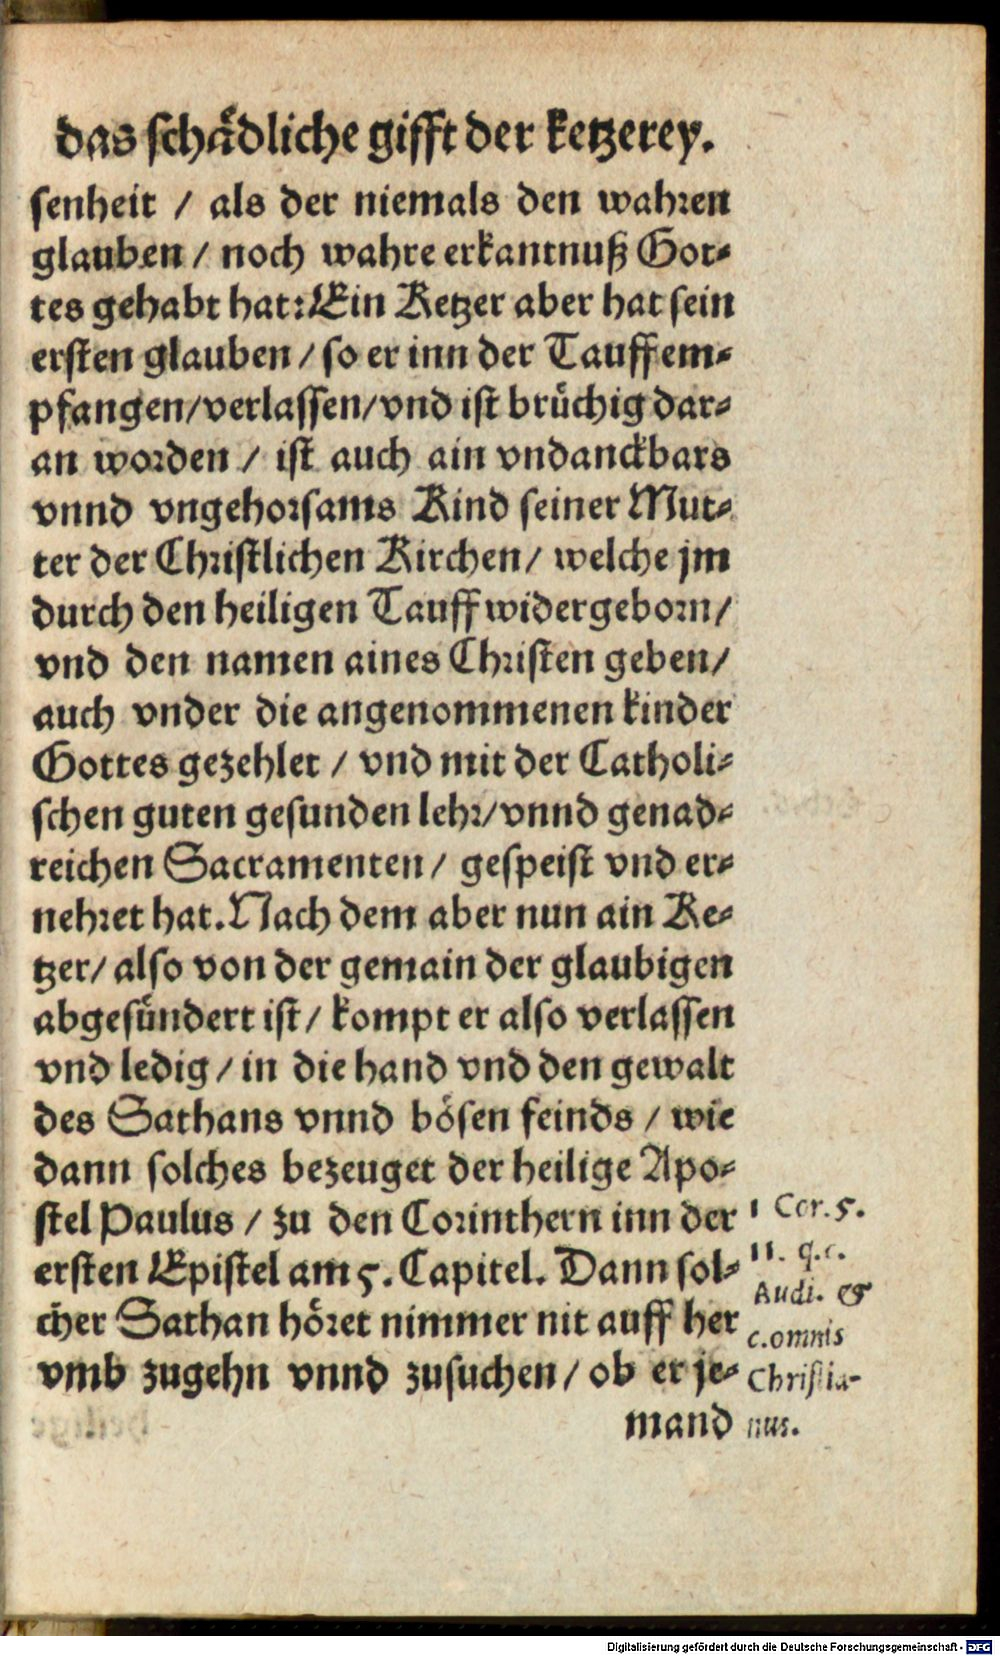 das schaͤdliche gifft der ketzerey.
senheit / als der niemals den wahren
glauben / noch wahre erkantnuß Got-
tes gehabt hat: Ein Ketzer aber hat sein
ersten glauben / so er inn der Tauff em-
pfangen/verlassen/vnd ist bruͤchig dar-
an worden / ist auch ain vndanckbars
vnnd vngehorsams Kind seiner Mut-
ter der Christlichen Kirchen/ welche jm
durch den heiligen Tauff widergeborn/
vnd den namen aines Christen geben/
auch vnder die angenommenen kinder
Gottes gezehlet / vnd mit der Catholi-
schen guten gesunden lehr/vnnd genad-
reichen Sacramenten/ gespeist vnd er-
nehret hat. Nach dem aber nun ain Ke-
tzer/ also von der gemain der glaubigen
abgesuͤndert ist/ kompt er also verlassen
vnd ledig / in die hand vnd den gewalt
des Sathans vnnd boͤsen feinds / wie
dann solches bezeuget der heilige Apo-
stel Paulus / zu den Corinthern inn der
ersten Epistel am 5. Capitel. Dann sol-
cher Sathan hoͤret nimmer nit auff her
vmb zugehn vnnd zusuchen / ob er je-
mand
1 Cor. 5.
11. q.c.
Audi. &
c. omnis
Christia-
nus.
Digitalisierung gefördert durch die Deutsche Forschungsgemeinschaft - DFG